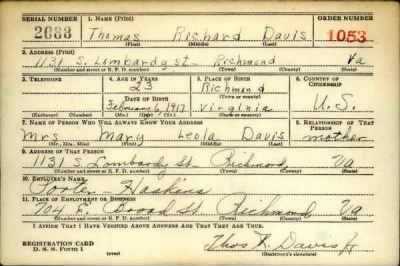 SERIAL NUMBER 1. NAME (Print) ORDER NUMBER
2688 Thomas Richard Davis 1053
(First) (Middle) (Last)
2. ADDRESS (Print)
1131 S. Lombardy st. Richmond Va
(Number and street or R. F. D. number) (Town) (County) (State)
3. TELEPHONE 4. AGE IN YEARS 5. PLACE OF BIRTH 6. COUNTRY OF CITIZENSHIP
23 Richmond
(Town or county)
DATE OF BIRTH
February 6, 1917 Virginia U.S.
(Exchange) (Number) (Mo.) (Day) (Yr.) (State or country)
7. NAME OF PERSON WHO WILL ALWAYS KNOW YOUR ADDRESS 8. RELATIONSHIP OF THAT PERSON
Mrs Mary Leola Davis mother
(Mr., Mrs., Miss) (First) (Middle) (Last)
9. ADDRESS OF THAT PERSON
1131 S. Lombardy St. Richmond, Va
(Number and street or R. F. D. number) (Town) (County) (State)
10. EMPLOYER'S NAME
Haskins
11. PLACE OF EMPLOYMENT OR BUSINESS
704 E. Broad St Richmond, Va
(Number and street or R. F. D. number) (Town) (County) (State)
I AFFIRM THAT I HAVE VERIFIED ABOVE ANSWERS AND THAT THEY ARE TRUE.
REGISTRATION CARD
D. S. S. Form 1
Thos R. Davis Jr
(Registrant's signature)